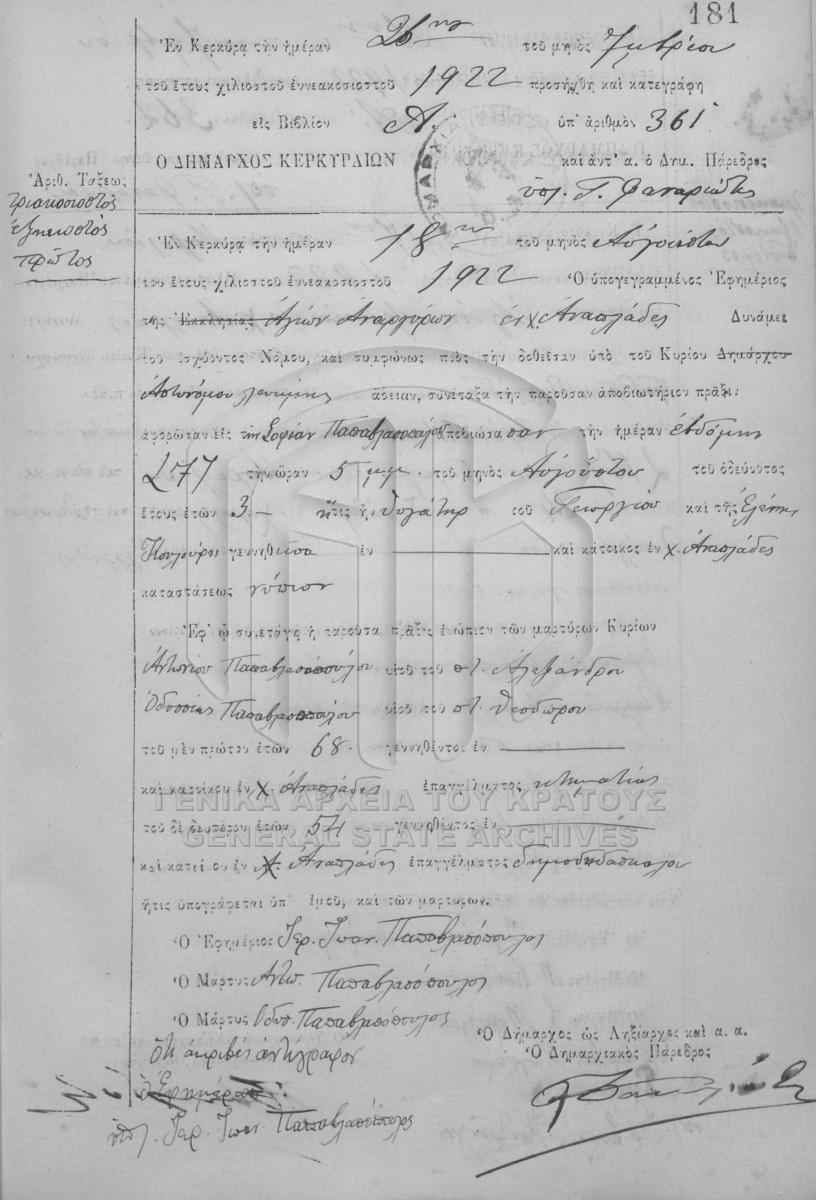 181
Ἐν Κερκύρᾳ τὴν ἡμέραν 26ην τοῦ μηνὸς 7μβρίου
τοῦ ἔτους χιλιοστοῦ ἐννεακοσιοστοῦ 1922 προσήχθη καὶ κατεγράφη
εἰς Βιβλίον Α. ὑπ' ἀριθμὸν 361
Ο ΔΗΜΑΡΧΟΣ ΚΕΡΚΥΡΑΙΩΝ καὶ ἀντ' α. ὁ Δημ. Πάρεδρος
ὑπ. Γ. Φαναριώτης
Ἀριθ. Τάξεως
τριακοσιοστὸς
ἑξηκοστὸς
πρῶτος
Ἐν Κερκύρᾳ τὴν ἡμέραν 18ην τοῦ μηνὸς Αὐγούστου
τοῦ ἔτους χιλιοστοῦ ἐννεακοσιοστοῦ 1922 Ὁ ὑπογεγραμμένος Ἐφημέριος
τῆς Ἐκκλησίας Ἁγίων Ἀναργύρων ἐν χ. Ἀναπλάδες Δυνάμει
τοῦ ἰσχύοντος Νόμου, καὶ συμφώνως πρὸς τὴν δοθεῖσαν ὑπὸ τοῦ Κυρίου Δημάρχου
Ἀστυνόμου Λευκίμης ἄδειαν, συνέταξα τὴν παροῦσαν ἀποβιωτήριον πρᾶξιν
ἀφορῶσαν εἰς τὴν Σοφίαν Παπαβλασοπούλου ἀποβιώσασαν τὴν ἡμέραν ἑβδόμην
τὴν ὥραν 5 μ.μ. τοῦ μηνὸς Αὐγούστου τοῦ ὁδεύοντος
ἔτους ἐτῶν 3 – ἥτις ἡ θυγάτηρ τοῦ Γεωργίου καὶ τῆς Ἑλένης
Κουλούρη γεννηθεῖσα ἐν καὶ κάτοικος ἐν χ. Ἀναπλάδες
καταστάσεως νήπιον
Ἐφ' ᾧ συνετάγη ἡ παροῦσα πρᾶξις ἐνώπιον τῶν μαρτύρων Κυρίων
Ἀντωνίου Παπαβλασοπούλου υἱοῦ τοῦ ποτ. Ἀλεξάνδρου
Ὀδυσσέως Παπαβλασοπούλου υἱοῦ τοῦ ποτ. Θεοδώρου
τοῦ μὲν πρώτου ἐτῶν 68 γεννηθέντος ἐν
καὶ κατοίκου ἐν χ. Ἀναπλάδες ἐπαγγέλματος κτηματίας
ΓΕΝΙΚΑ ΑΡΧΕΙΑ ΤΟΥ ΚΡΑΤΟΥΣ
τοῦ δὲ δευτέρου ἐτῶν 54 γεννηθέντος ἐν
GENERAL STATE ARCHIVES
καὶ κατοίκου ἐν χ. Ἀναπλάδες ἐπαγγέλματος δημοδιδασκάλου
ἥτις ὑπογράφεται ὑπ' ἐμοῦ, καὶ τῶν μαρτύρων.
Ὁ Ἐφημέριος Ἱερ. Ἰωαν. Παπαβλασόπουλος
Ὁ Μάρτυς Ἀντω. Παπαβλασόπουλος
Ὁ Μάρτυς Ὀδυσ. Παπαβλασόπουλος
Ὅτι ἀκριβὲς ἀντίγραφον
Ὁ Δήμαρχος ὡς Ληξίαρχος καὶ α. α.
Ὁ Δημαρχιακὸς Πάρεδρος
ὁ Ἐφημέριος
ὑπ. Ἱερ. Ἰωαν. Παπαβλασόπουλος